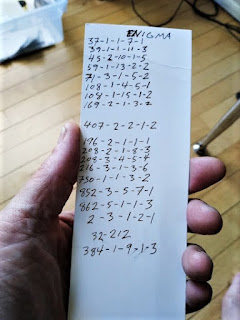 ENIGMA
37-1-1-7-1
39-1-1-11-3
45-2-10-1-5
59-1-13-2-2
71-3-1-5-2
108-1-4-5-1
108-1-15-1-2
169-2-1-3-2
407-2-2-1-2
196-2-1-1-1
208-2-1-8-3
208-3-4-5-4
216-3-1-3-6
750-1-1-3-2
852-3-5-7-1
862-5-1-1-3
2-3-1-2-1
32-212
384-1-9-1-3